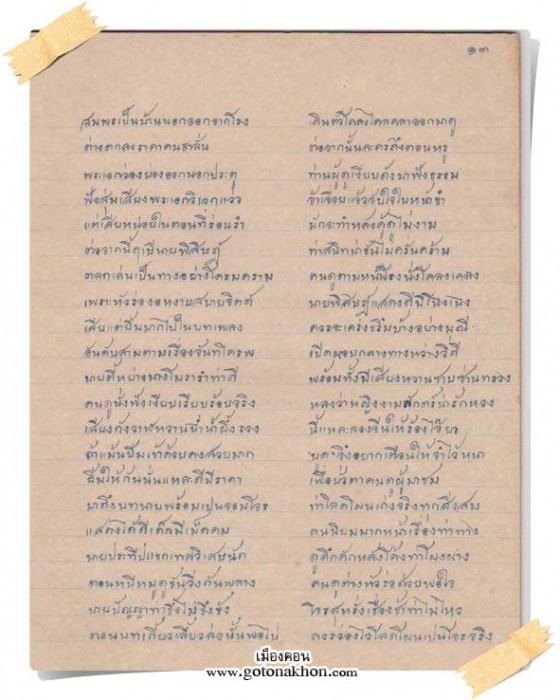 ๑๓
สมพระเป็นบ้านนอกออกจากโรง เดินตัวโคลงโคลคลาออกมาดู
ต่างตกลงราคาคนชาลั่น ต่อจากนั้นละครถึงตอนหรู
พระเอกว่องย่องออกนอกประตู ท่านผู้ดูเงียบดังมาฟังธรรม
ฟังสุ้มเสียงพระเอกวิเวกแว่ว จ้าเจื้อยแจ้วจับใจในหน้าขำ
แต่เสียหน่อยในตอนที่ร่อนรำ มักจะทำหลังคู้ดูไม่งาม
ต่อจากนี้ๆ เป็นายพิสิษฎ์ ท่าสนิทน่าขันไม่ครั่นคร้าม
ตลกเล่นเป็นทางอย่างโครมคราม คนดูตามหน้าโรงนั่งโคลงเคลง
เพราะหัวร่องอหงายสบายจิตต์ นายพิสิษฎ์แสดงดีมีโฉงเฉง
เสียแต่ยิ้มมากไปในบทเพลง ควรจะเคร่งขรึมบ้างอย่างมุนี
อันดับสามตามเรื่องจันทโครพ เปิดผอบกลางทางหว่างวิถี
นายตี้หย่างนางโมราร่าท่าดี พร้อมทั้งมีเสียงหวานซาบซ่านทรวง
คนดูนั่งฟังเงียบเรียบร้อยจริง หลงว่าหญิงงามพักตร์น่ารักหวง
เสียงกังวานหวานฉ่ำน้ำผึ้งรวง นี้แหละลวงจึงให้ร้องไอ้ยา
ถ้าแม้นยิ้มเข้าด้วยคงสวยมาก อยากเตือนให้จำไว้หนา
ยิ้มให้กันนั่นแหละดีมีราคา เพื่อยั่วตาคนดูผู้มาชม
มาถึงบทนายพร้อมเปนจอมโจร ท่าโลดโผนเก่งจริงทุกสิ่งสม
แสดงได้ดีเด็ดมีเม็ดคม คนนิยมมากหน้าเรื่องท่าทาง
นายประทีปแขกเทศวิเศษนัก ดูคึกคักหลังโค้งท่าโผงผาง
ตอนหนีหมูดูขันวิ่งกันพลาง คนดูต่างหัวร่อด้วยพอใจ
นายปัญญาท่าขึงไม่ขึงขัง โทรสุหรั่งเรื่องช้าทำไม่ไหว
ตอนบทเลี้ยวเลี้ยวล่อนั้นพอไป ควรว่องไวโลดโผนเปนโจรจริง
เมืองคอน
www.gotonakhon.com